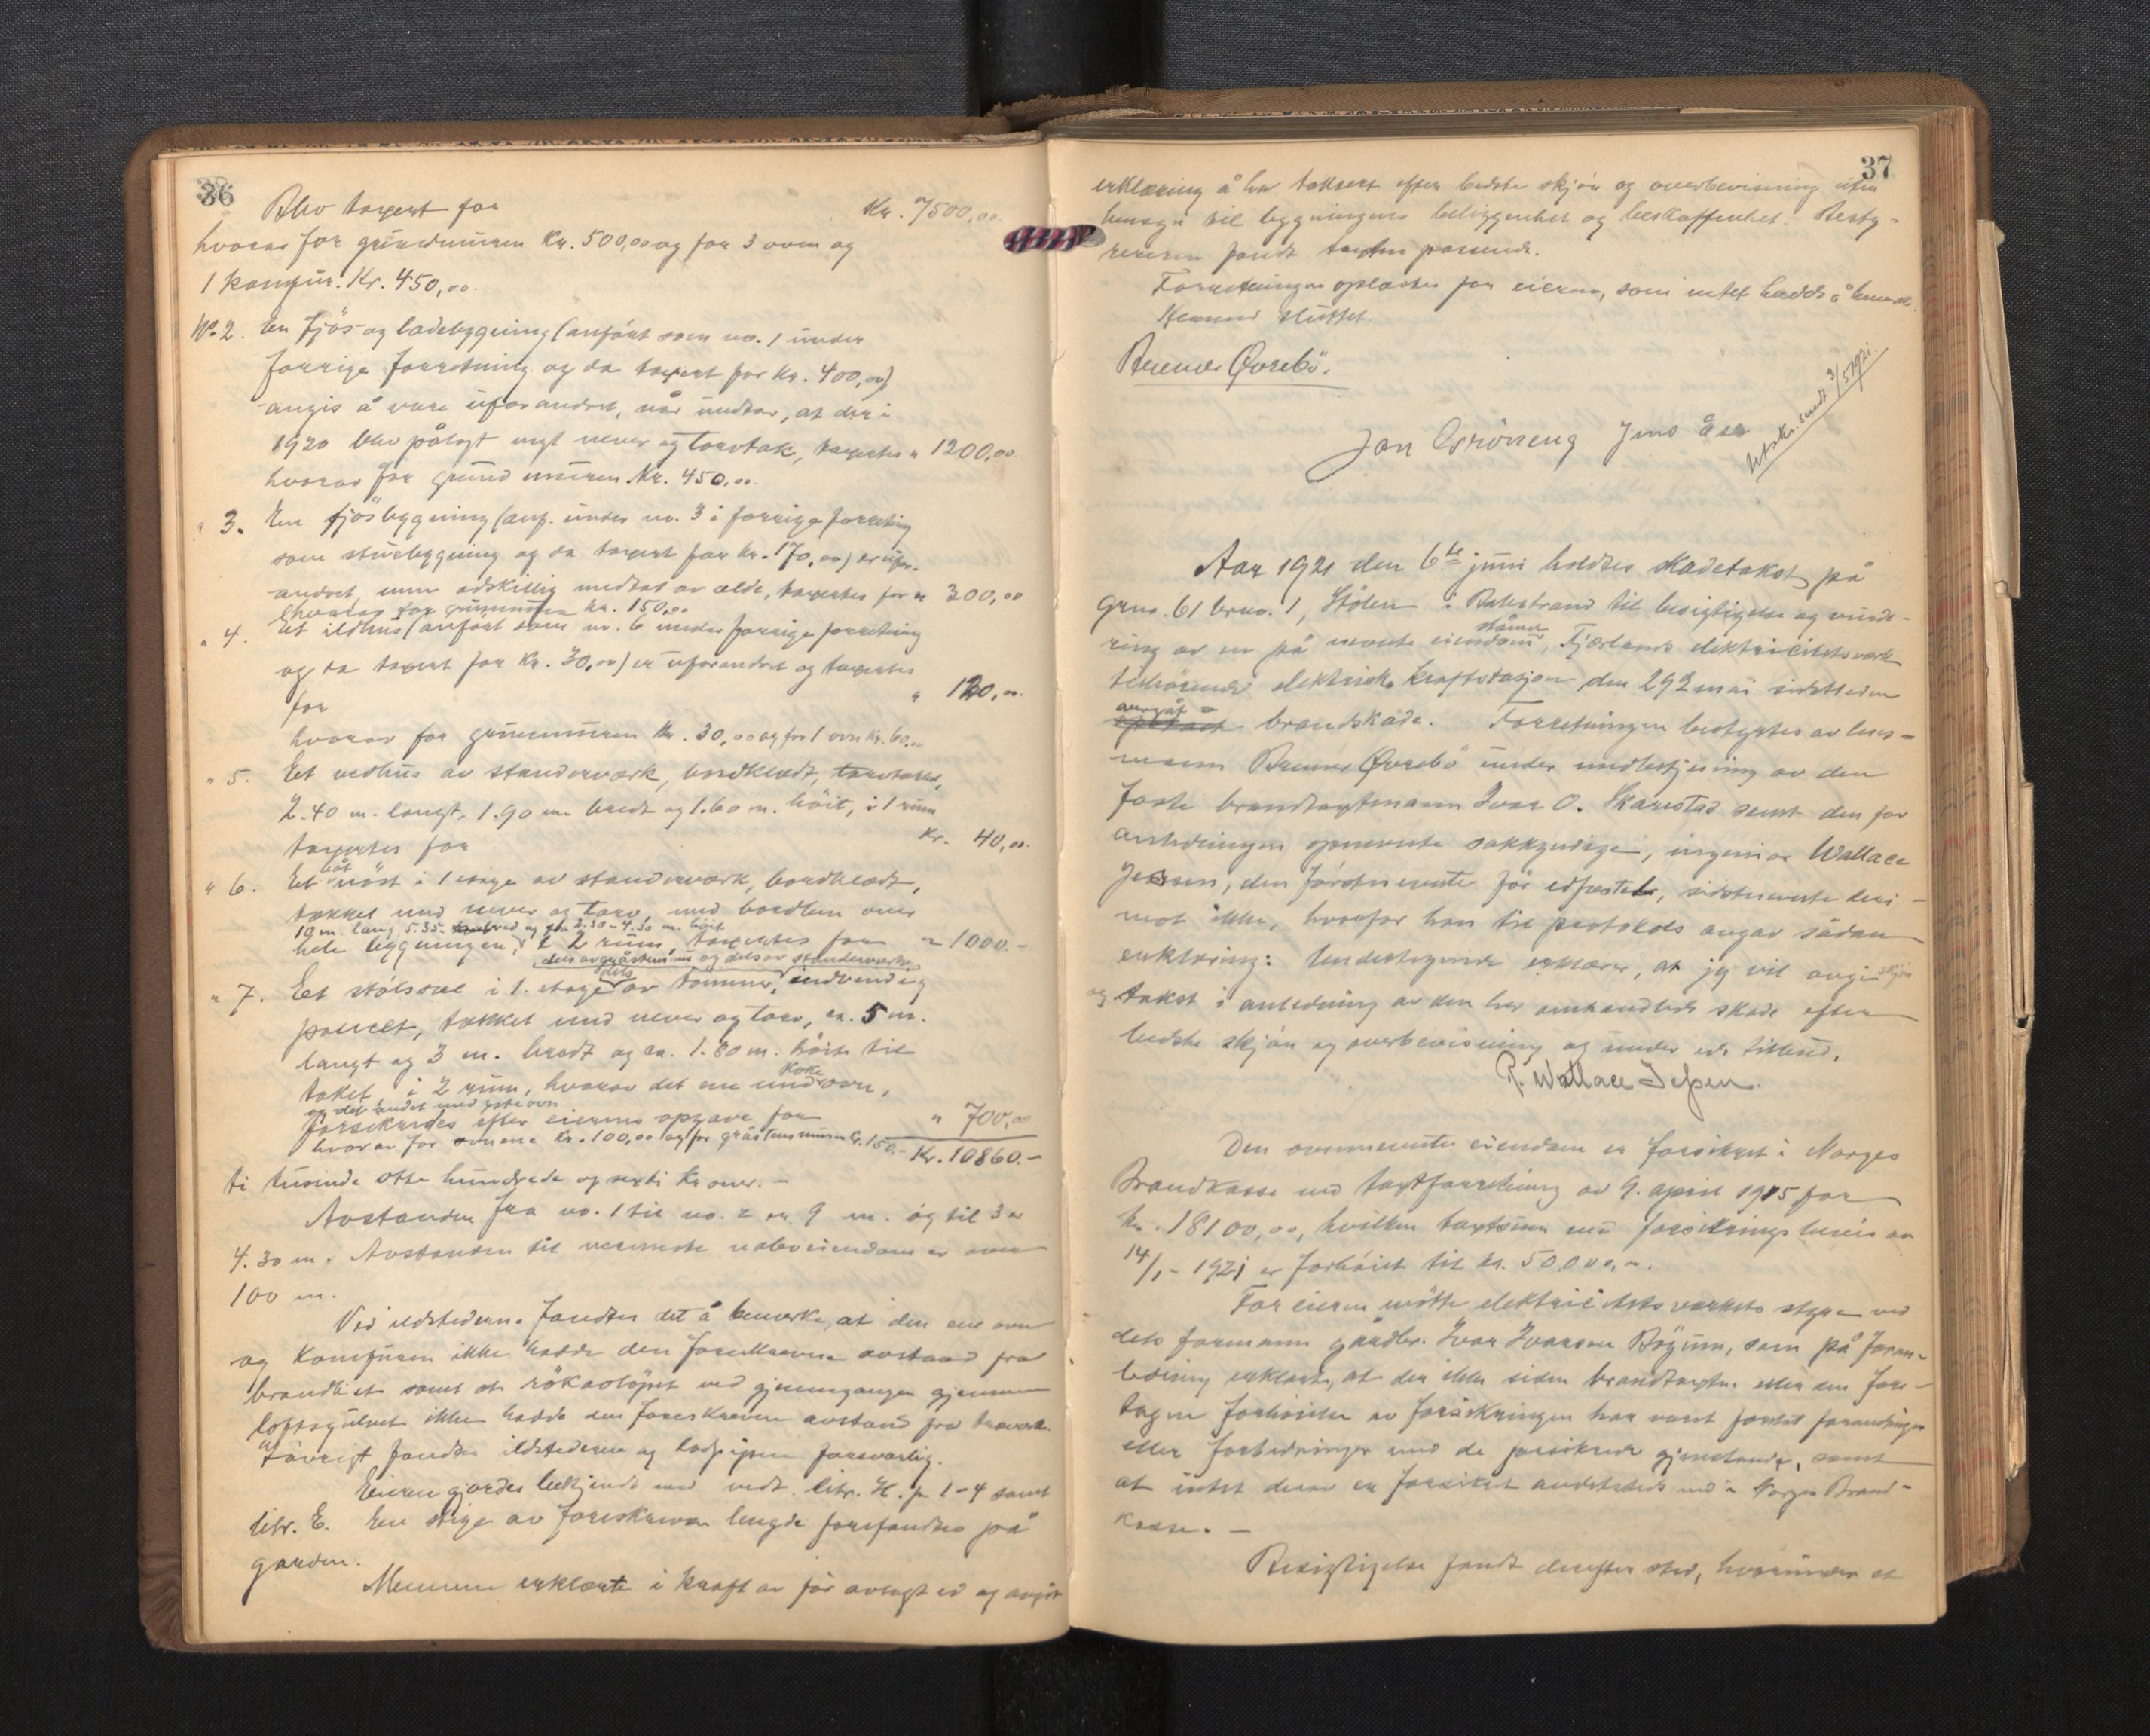 36
Blev taxert for Kr. 7500,00
hvorav for grundmuren Kr. 500,00 og for 3 ovner og
1 komfur. Kr. 450,00.
No. 2. En fjös- og ladebygning (anfört som no. 1 under
forrige forretning og da taxert for Kr. 400,00)
angis å være uforandret, når undtas, at der i
1920 blev pålagt nyt never og torvtak, taxertes " 1200,00.
hvorav for grundmuren Kr. 450,00.
" 3. En fjösbygning (anf. under no. 3 i forrige forretning
som stuebygning og da taxert for kr. 170,00) er ufor-
andret, men adskillig medtat av ælde, taxertes for " 300,00
(hvorav for grunmuren kr. 150,00
" 4. Et ildhus (anfört som no. 6 under forrige forretning
og da taxert for Kr. 30,00) er uforandret og taxertes
for " 120,00.
hvorav for grunnmuren Kr. 30,00 og for 1 ovn Kr. 60,00
" 5. Et vedhus av standerværk, bordklædt, torvtækket,
2.40 m. langt, 1.90 m. bredt og 1.60 m. höit, i 1 rum
taxertes for Kr. 40,00.
" 6. Et båt nöst i 1 etage av standerværk, bordklædt,
tækket med never og torv, med bordlem over
10 m. lang 5.35 bred og fra 2.30 - 4.30 m. höit
hele bygningen, i 2 rum, taxertes for " 1000.-
dels av gråstensmur og dels av standerværk
" 7. Et stölssel i 1. etage dels av tömmer, indvendig
panelt, tækket med never og torv, ca. 5 m.
langt og 3 m. bredt og ca. 1.80 m. höite til
taket i 2 rum, hvorav det ene med kokeovn,
og det andet med ysteovn
forsikredes efter eierens opgave for " 700,00
hvorav for ovnene Kr. 100,00 og for gråstensmuren Kr. 150.- Kr. 10860.-
ti tusinde otte hundrede og sexti kroner. -
Avstanden fra no. 1 til no. 2 er 9 m. og til 3 er
4.30 m. Avstanden til nærmeste naboeiendom er over
100 m.
Ved ildstederne fandtes det å bemerke, at den ene ovn
og komfuren ikke hadde den foreskrevne avstand fra
brandbart samt at rökavlöpet ved gjennemgangen gjennem
loftsgulvet ikke hadde den foreskrevne avstand fra træverk.
Iövrigt fandtes ildstederne og ladpipen forsvarlig.
Eieren gjordes bekjendt med vedt. litr. H. p 1-4 samt
litr. E. En stige av foreskreven lengde forefandtes på
garden.
Mennene erklærte i kraft av för avlagt ed og avgit
37
erklæring å ha taksert efter bedste skjön og overbevisning uten
hensyn til bygningens beliggenhet og beskaffenhet. Besty-
reren fandt taxten passende.
Forretningen oplæstes for eieren, som intet hadde å bemerke.
Hermed sluttet.
Brenner Övrebö.
Utskr. sendt 3/5 1921.
Jon Gröneng Jens Åse
Aar 1921 den 6te juni holdtes skadetakst på
grno. 61 brno. 1, Stölen i Bakstrand til besigtigelse og vurde-
ring av en på nevnte eiendom stående, Fjærlands elektricitetsværk
tilhörende elektriske kraftstasjon den 29 mai sidstleden
overgåt brandskade. Forretningen bestyrtes av lens-
mann Brenner Övrebö under medbetjening av den
faste brandtaxtmann Ivar O. Skarestad samt den for
anledningen opnevnte sakkyndige, ingeniör Wallace
Jessen, den förstnevnte för edfæstet, sidstnevnte deri-
mot ikke, hvorfor han til protokols avgav sådan
erklæring: Undertegnede erklærer, at jeg vil avgi skjön
og takst i anledning av den her omhandlede skade efter
bedste skjön og overbevisning og under eds tilbud.
R. Wallace Jessen.
Den ovennevnte eiendom er forsikret i Norges
Brandkasse ved taxtforretning av 9. april 1915 for
kr. 18100,00, hvilken taxtsum ved forsikringsbevis av
14/1 - 1921 er forhöiet til kr. 50000,00.
For eieren mötte elektricitetsverkets styre ved
dets formann gårdbr. Ivar Ivarson Böyum, som på foran-
ledning erklærte, at der ikke siden brandtaxten eller den fore-
tagne forhöielse av forsikringen har været foretat forandringer
eller forbedringer med de forsikrede gjenstande, samt
at intet derav er forsikret andetsteds end i Norges Brand-
kasse. -
Besigtigelse fandt derefter sted, hvorunder at